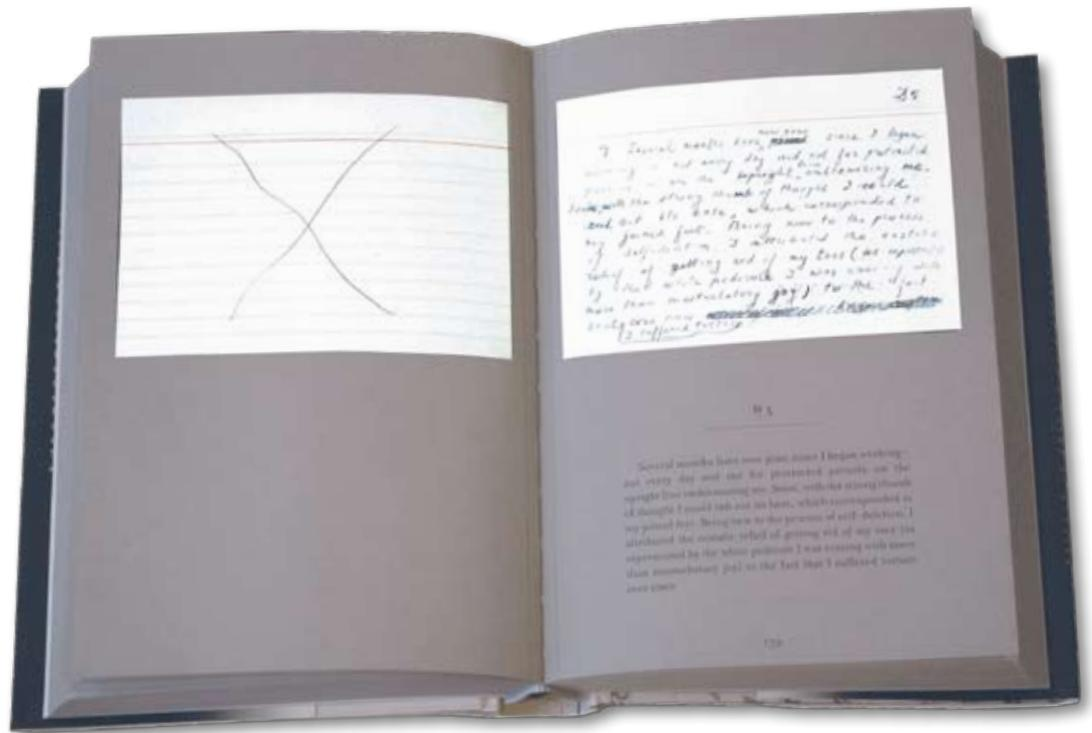 Several months have now gone since I began
working - not every day and not for protracted
periods - on the upright line emblematizing me.
Soon, with the strong thumb of thought I could
rub out its base, which corresponded to
my joined feet. Being new to the process
of self-deletion I attributed the ecstatic
relief of getting rid of my toes (as represented
by the white pedicule I was erasing with
more than masturbatory joy) to the fact
I suffered torture
Several months have now gone since I began working—
not every day and not for protracted periods—on the
upright line emblematizing me. Soon, with the strong thumb
of thought I could rub out its base, which corresponded to
my joined feet. Being new to the process of self-deletion, I
attributed the ecstatic relief of getting rid of my toes (as
represented by the white pedicule I was erasing with more
than masturbatory joy) to the fact that I suffered torture
ever since